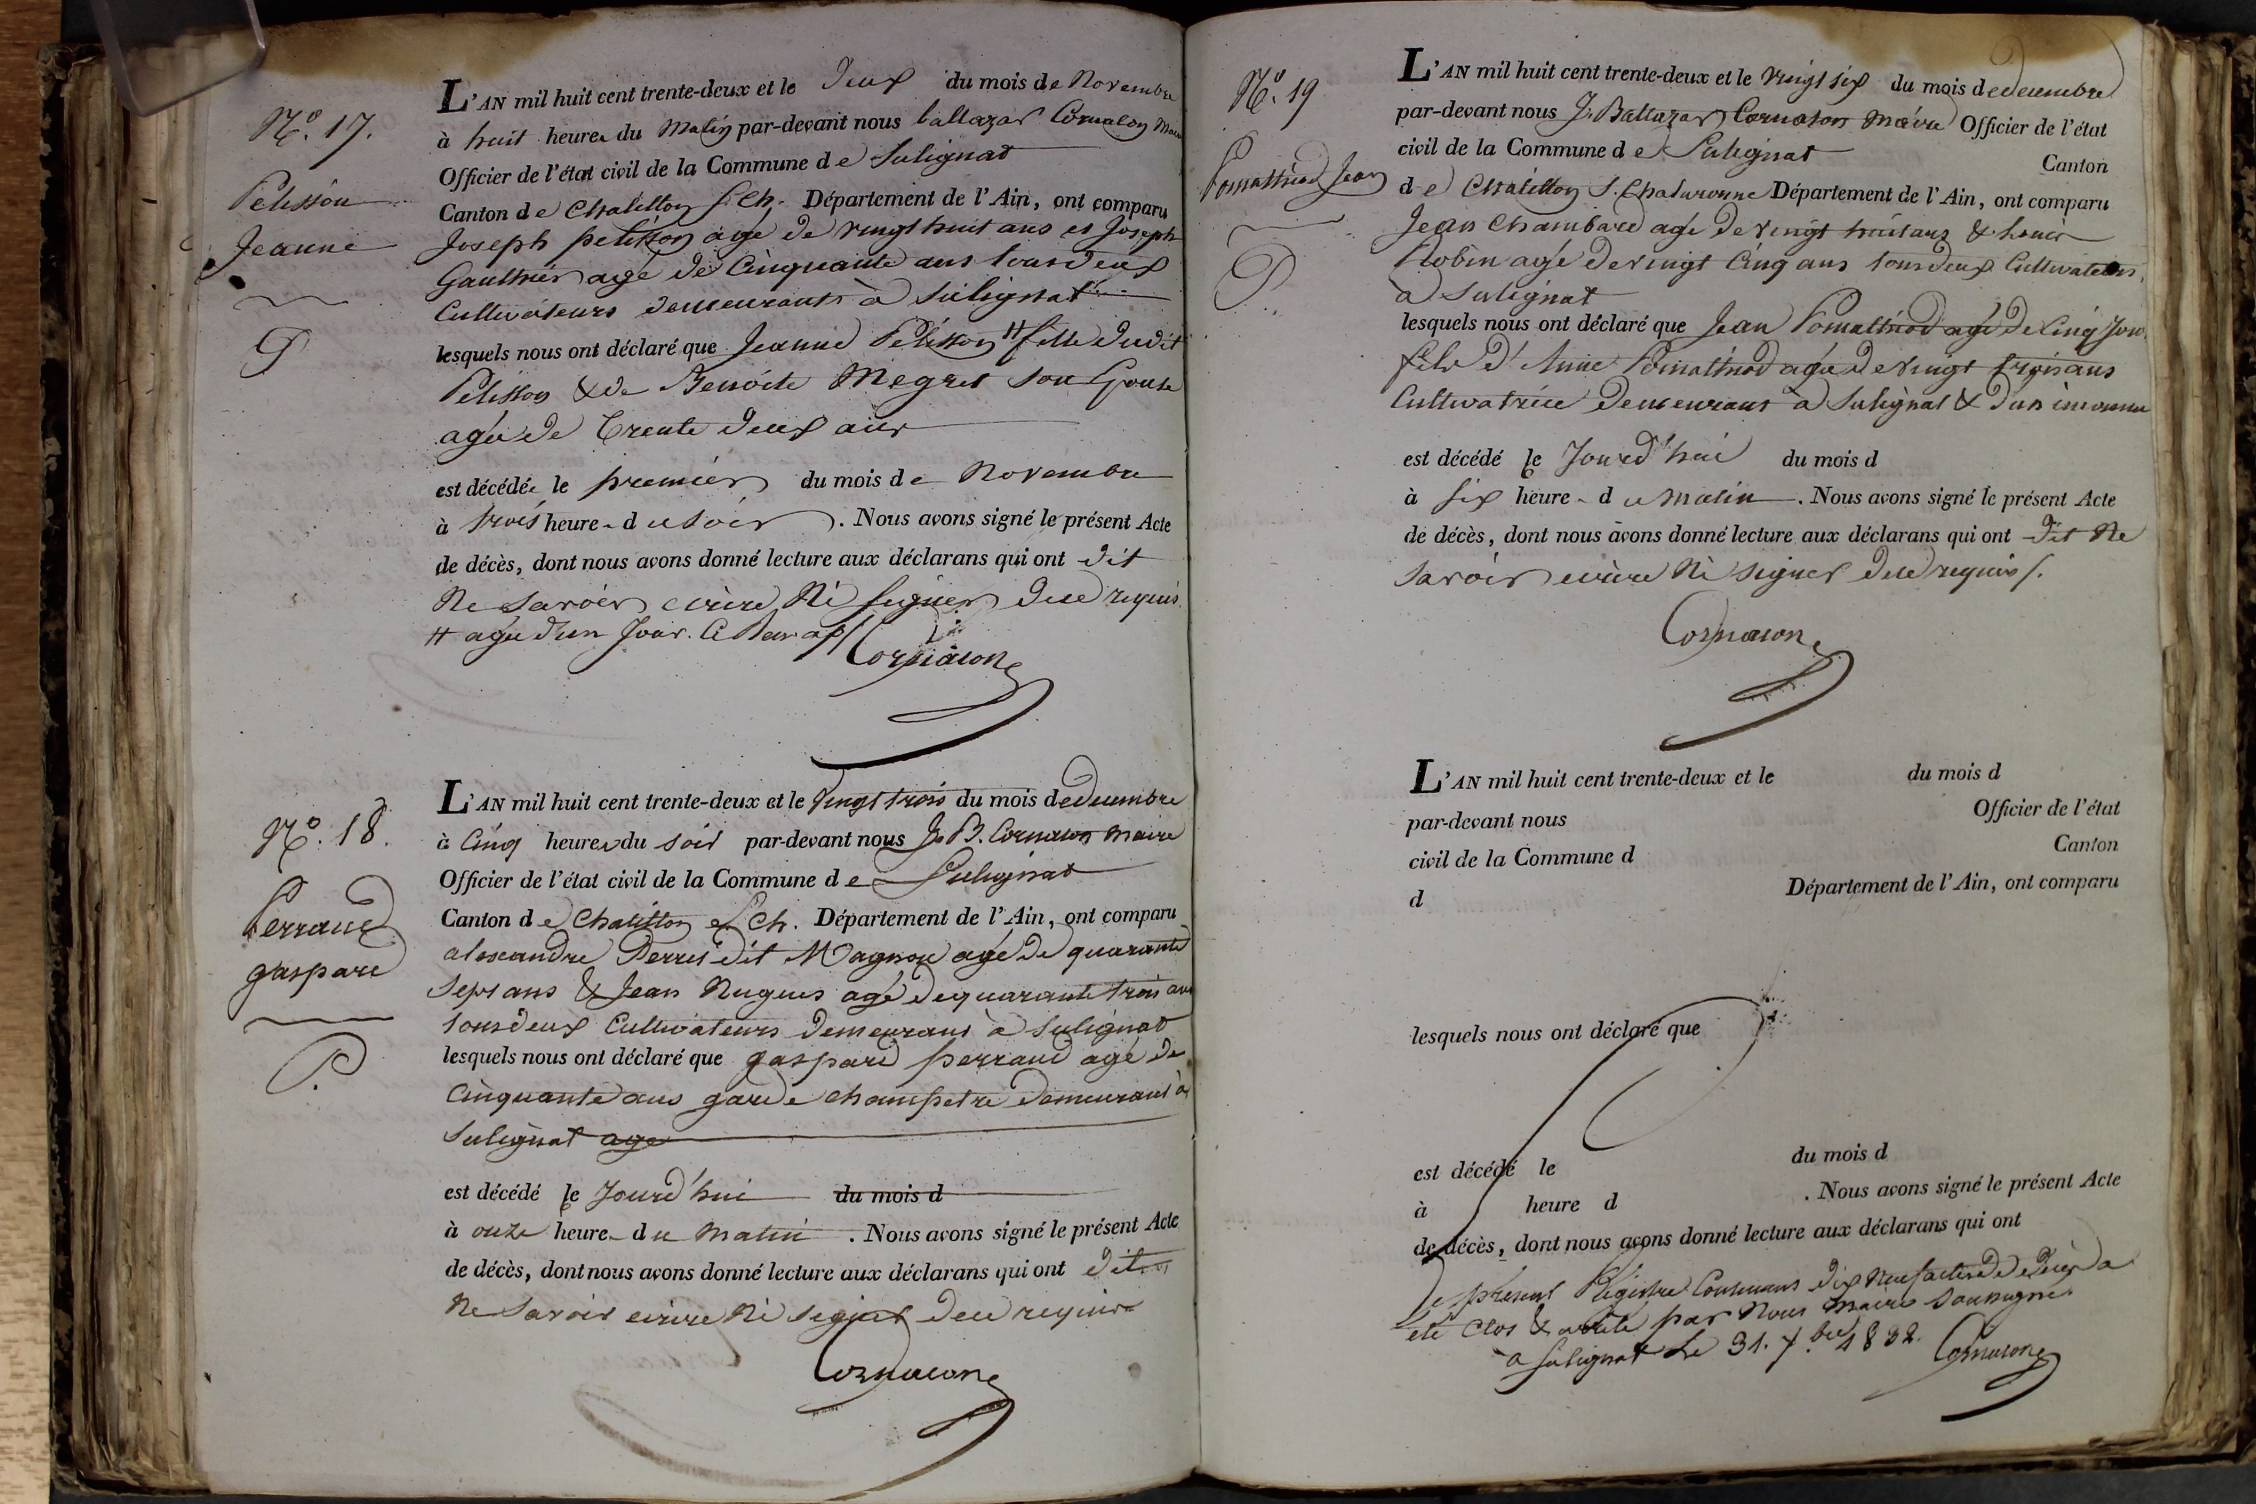 N.º 17.
Pelisson
Jeanne
P
L'AN mil huit cent trente-deux et le deux du mois de Novembre
à huit heures du Matin par-devant nous baltazar Cornaton Maire
Officier de l'état civil de la Commune de Sulignat
Canton de Chatillon s. Ch. Département de l'Ain, ont comparu
Joseph pelisson agé de vingt huit ans et Joseph
Gauthier agé de Cinquante ans tous deux
Cultivateurs demeurants à Sulignat
lesquels nous ont déclaré que Jeanne Pelisson # fille dudit
Pelisson & de Benoite Megret son Epouse
agée de trente deux ans
est décédée le premier du mois de Novembre
à trois heure du soir. Nous avons signé le présent Acte
de décès, dont nous avons donné lecture aux déclarans qui ont dit
Ne savoir ecrire Ni signer de ce requis
# agée d'un Jour.
Cornaton
N.º 18.
Perraud
gaspard
P.
L'AN mil huit cent trente-deux et le vingt trois du mois de decembre
à Cinq heures du soir par-devant nous J. B. Cornaton Maire
Officier de l'état civil de la Commune de Sulignat
Canton de Chatillon s. Ch. Département de l'Ain, ont comparu
alexandre Perret dit Magnon agé de quarante
Sept ans & Jean Nugues agé de quarante trois ans
tous deux Cultivateurs demeurant à Sulignat
lesquels nous ont déclaré que gaspard perraud agé de
Cinquante ans garde champetre demeurant à
Sulignat age
est décédé le Jourd'hui du mois d
à onze heure du Matin. Nous avons signé le présent Acte
de décès, dont nous avons donné lecture aux déclarans qui ont dit
Ne Savoir ecrire Ni signer de ce requis
Cornaton
N.º 19
Pomathiod Jean
P.
L'AN mil huit cent trente-deux et le vingt six du mois de decembre
par-devant nous J. Baltazar Cornaton Maire Officier de l'état
civil de la Commune de Sulignat Canton
de Chatillon S. Chalaronne Département de l'Ain, ont comparu
Jean Chambard agé de vingt huit ans &
Robin agé de vingt Cinq ans tous deux Cultivateurs
à Sulignat
lesquels nous ont déclaré que Jean Pomathiod agé de Cinq Jour
fils d'Anne Pomathiod agée de vingt trois ans
Cultivatrice demeurant à Sulignat & d'un inconnu
est décédé le Jourd'hui du mois d
à six heure du matin. Nous avons signé le présent Acte
de décès, dont nous avons donné lecture aux déclarans qui ont dit Ne
savoir ecrire Ni signer de ce requis /.
Cornaton
L'AN mil huit cent trente-deux et le du mois d
par-devant nous Officier de l'état
civil de la Commune d Canton
d Département de l'Ain, ont comparu
lesquels nous ont déclaré que
est décédé le du mois d
à heure d . Nous avons signé le présent Acte
de décès, dont nous avons donné lecture aux déclarans qui ont
Le présent Régistre Contenant dix Neuf actes de décès a
été Clos & arrêté par Nous Maire soussigné
a Sulignat Le 31. Xbre 1832. Cornaton